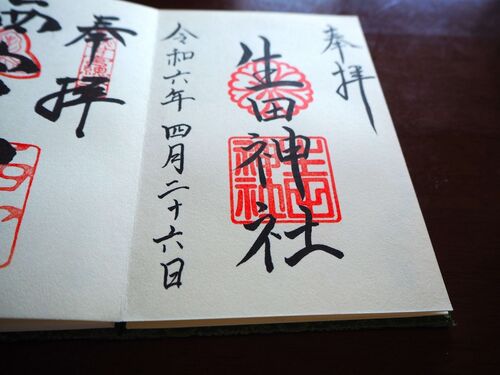 奉拝
生田神社
令和六年四月二十六日
奉拝